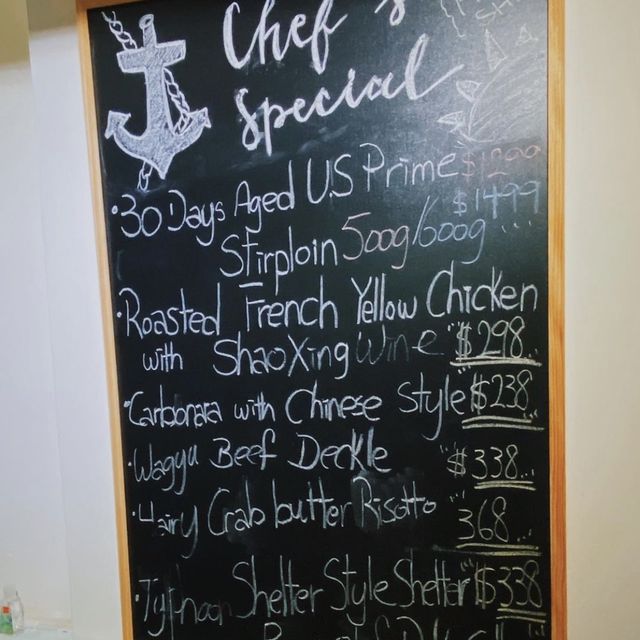 Chef's
Special
·30 Days Aged U.S Prime $1299
Stirploin 500g/600g $1499
·Roasted French Yellow Chicken
with ShaoXing Wine $298
·Carbonara with Chinese Style $238
·Wagyu Beef Deckle $338
·Hairy Crab butter Risotto 368
·Typhoon Shelter Style Shelter $338